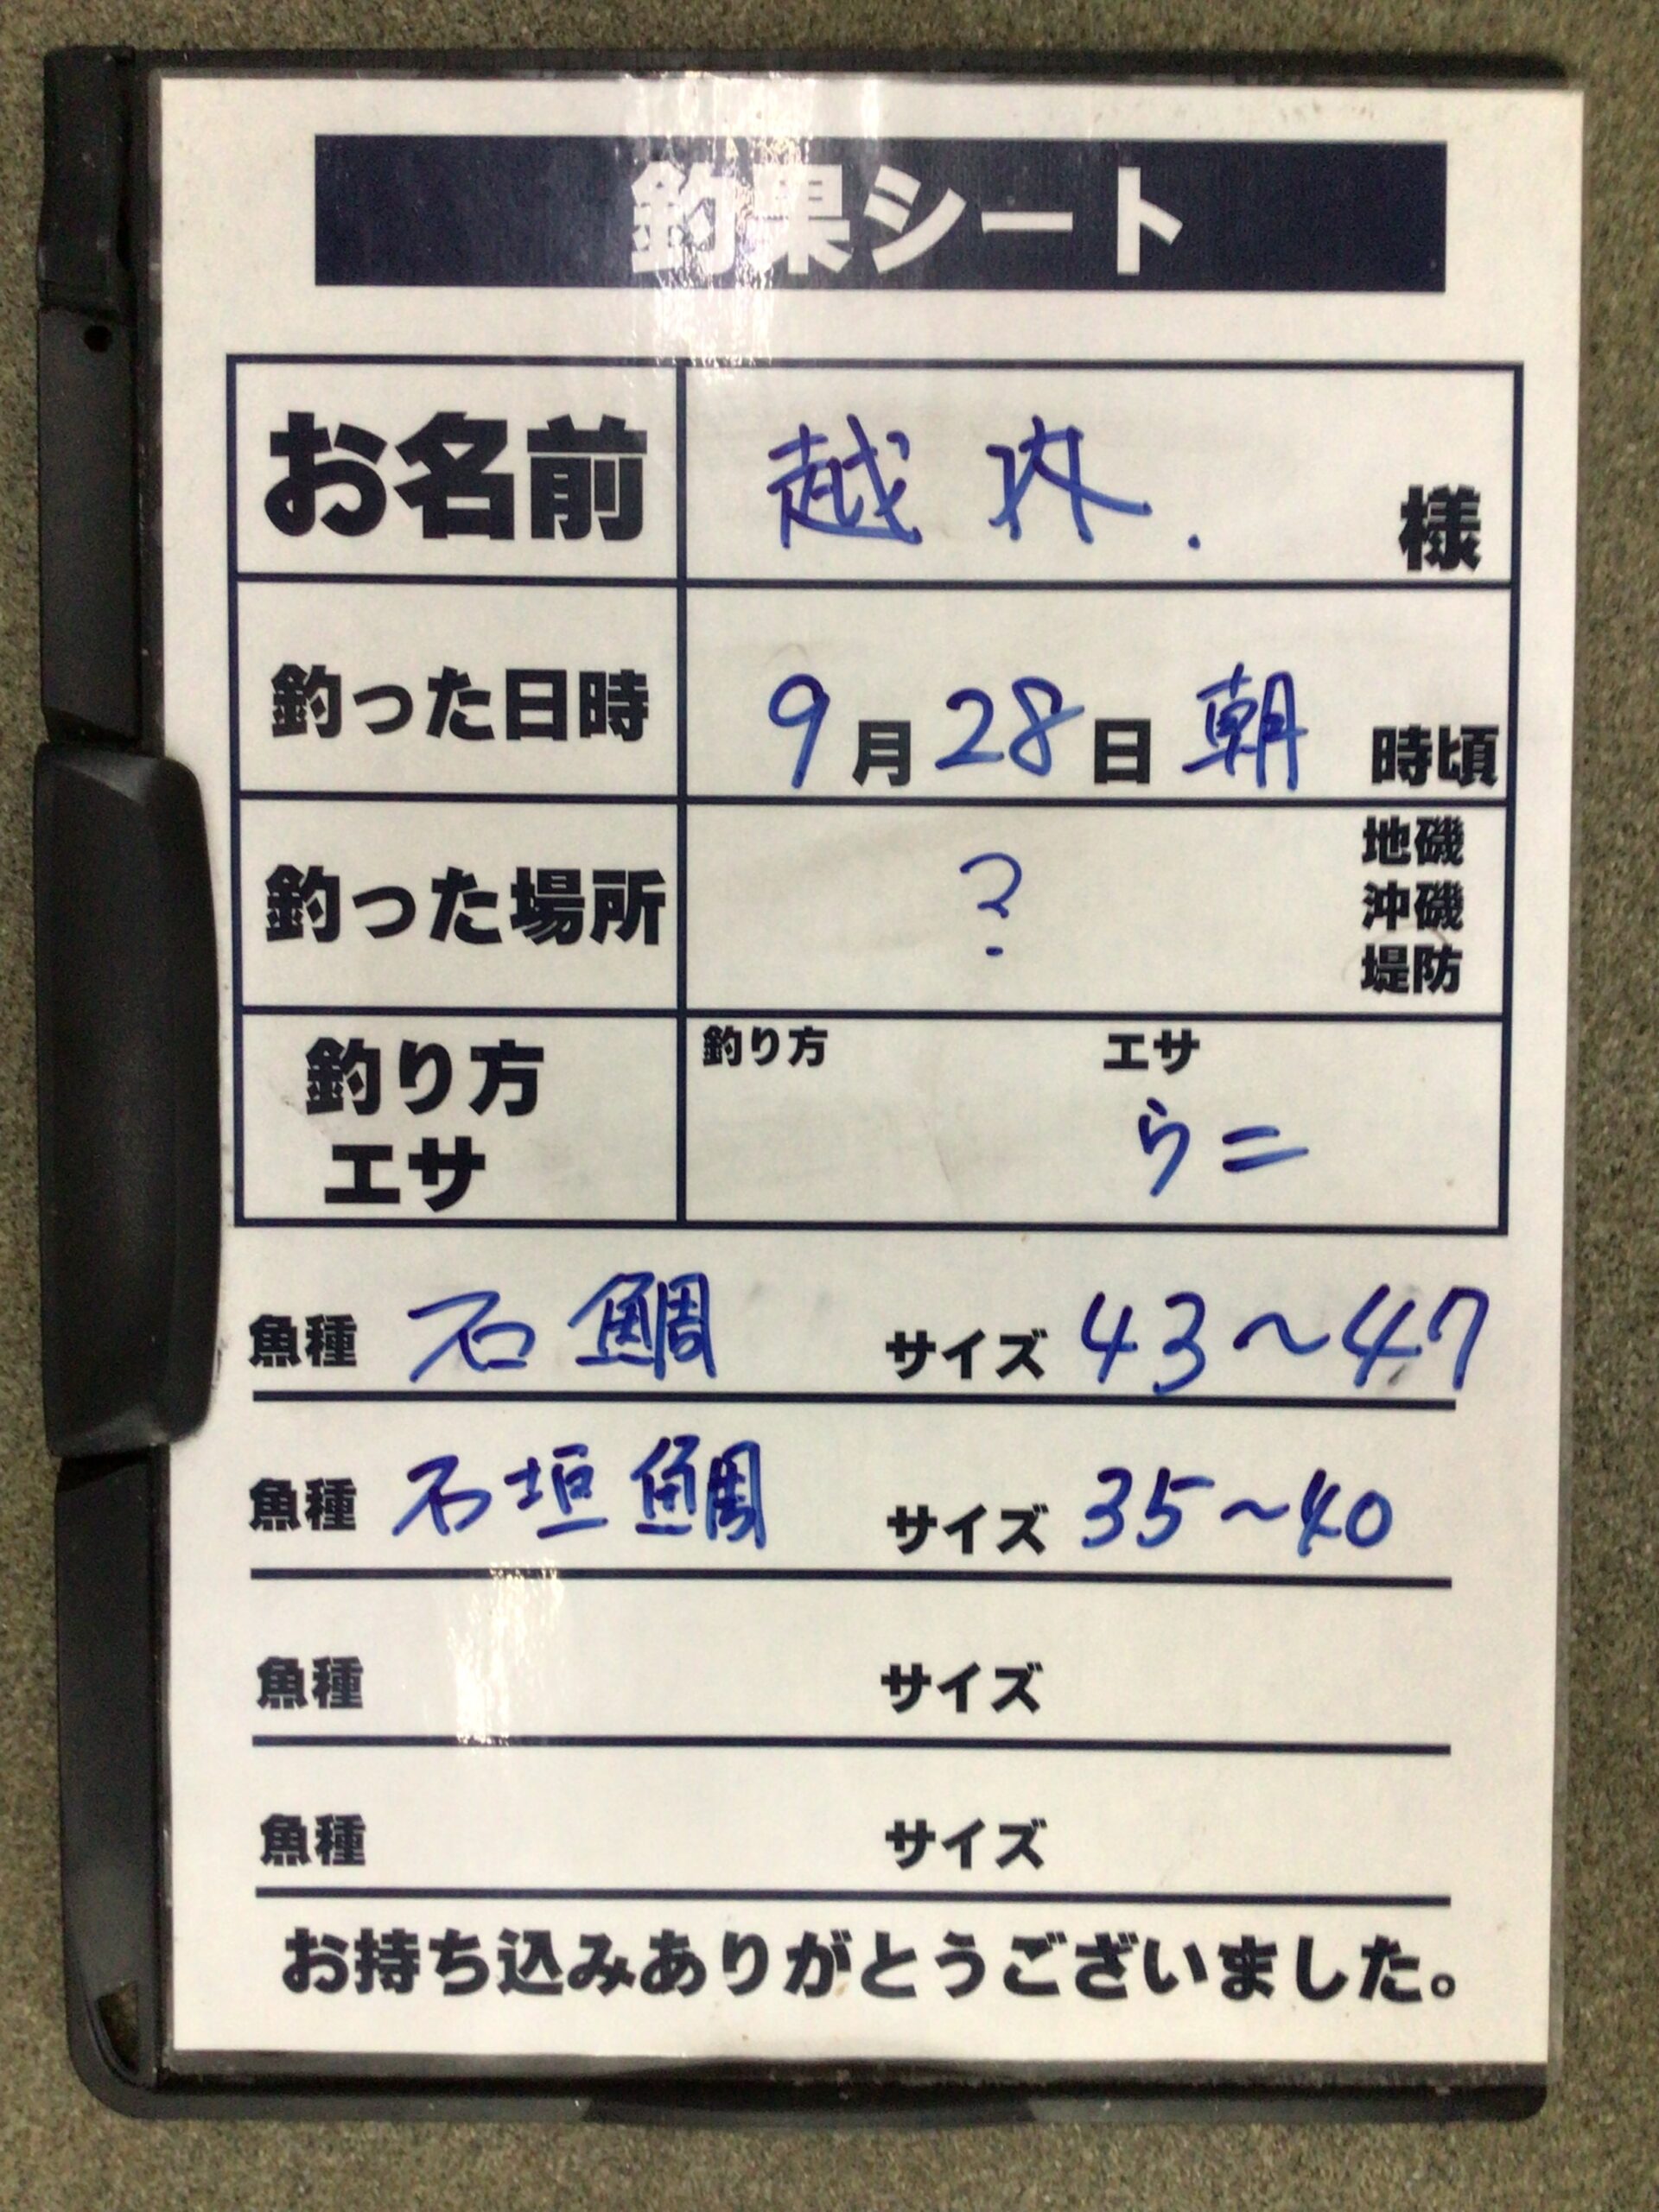 釣果シート
お名前 越林. 様
釣った日時 9月28日 朝 時頃
釣った場所 ? 地磯
沖磯
堤防
釣り方
エサ
釣り方 エサ
ウニ
魚種 石鯛 サイズ 43～47
魚種 石垣鯛 サイズ 35～40
魚種 サイズ
魚種 サイズ
お持ち込みありがとうございました。